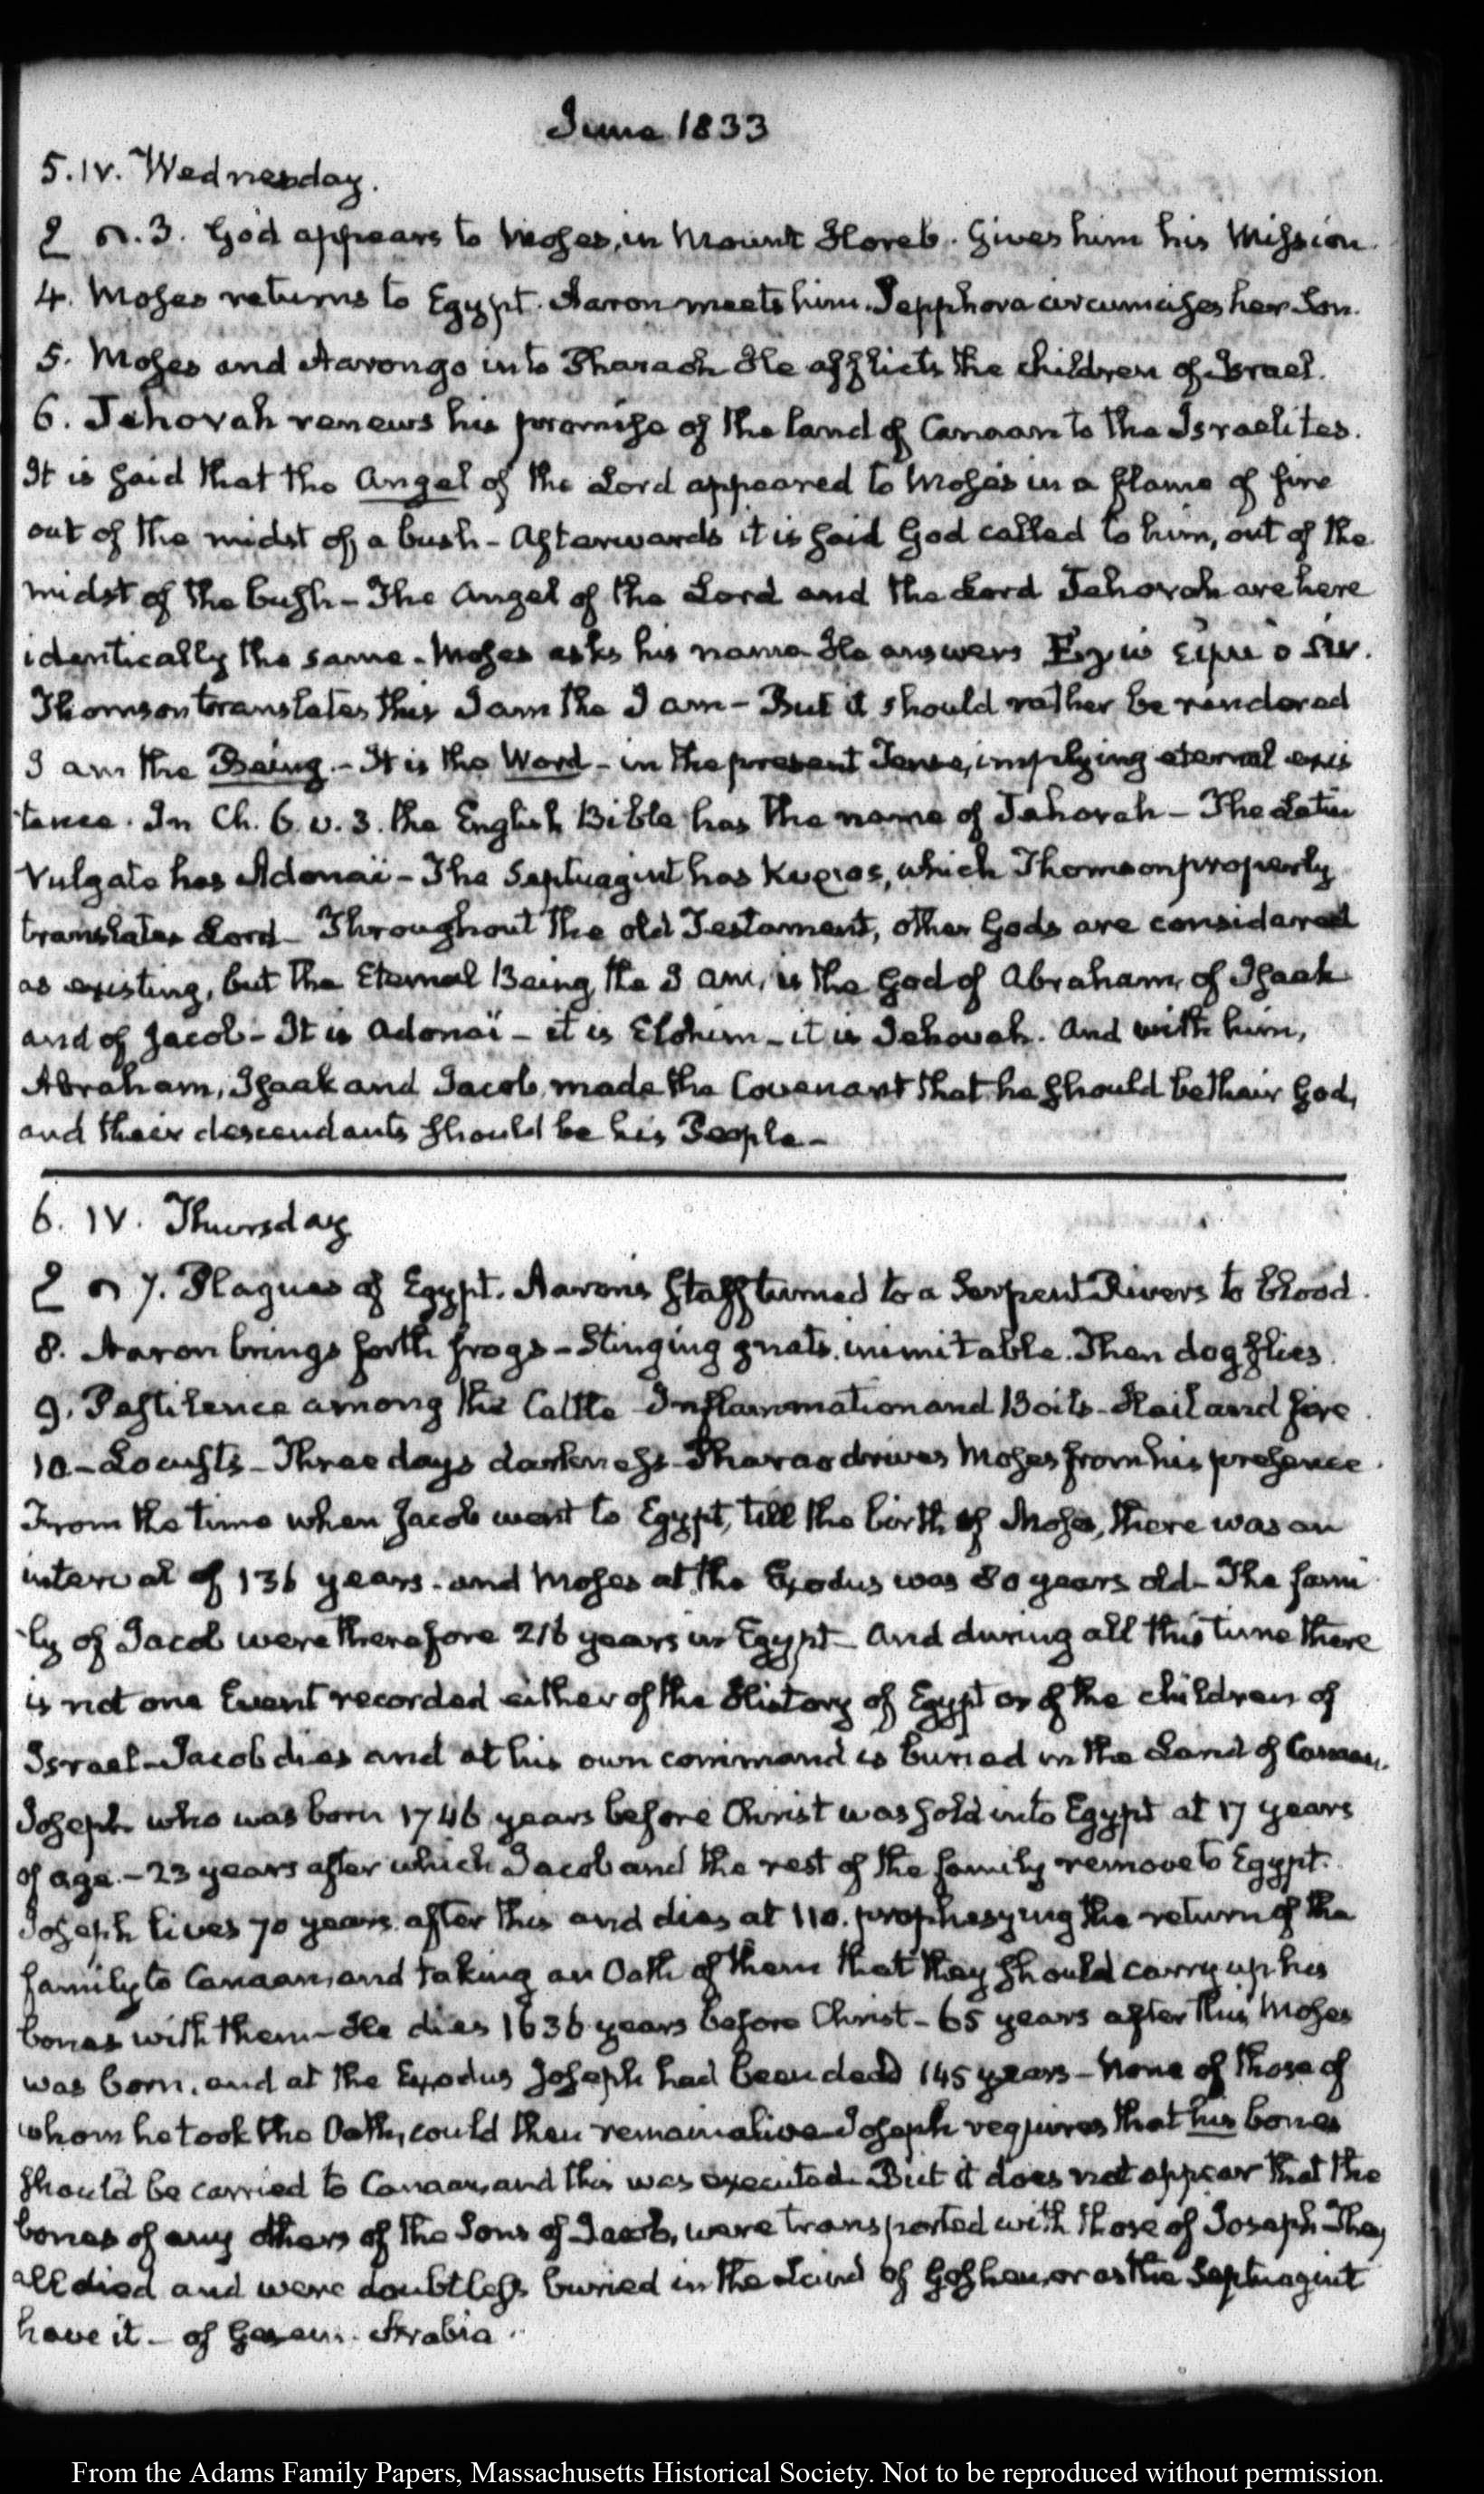 June 1833
5. IV. Wednesday.
3. God appears to Moses, in Mount Horeb. Gives him his Mission.
4. Moses returns to Egypt. Aaron meets him. Sepphora circumcises her Son.
5. Moses and Aaron go in to Pharaoh He afflicts the children of Israel.
6. Jehovah renews his promise of the land of Canaan to the Israelites.
It is said that the Angel of the Lord appeared to Moses in a flame of fire
out of the midst of a bush - Afterwards it is said God called to him, out of the
midst of the bush - The Angel of the Lord and the Lord Jehovah are here
identically the same - Moses asks his name He answers Εγω ειμι ο Ων.
Thomson translates this I am the I am - But it should rather be rendered
I am the Being. - It is the Word - in the present Tense, implying eternal exis
tence. In Ch. 6. v. 3. the English Bible has the name of Jehovah - The Latin
Vulgate has Adonaï - The Septuagint has Κυριος, which Thomson properly
translates Lord - Throughout the old Testament, other Gods are considered
as existing, but the Eternal Being, the I am, is the God of Abraham, of Isaak
and of Jacob - It is Adonaï - it is Elohim - it is Jehovah. And with him,
Abraham, Isaak and Jacob, made the Covenant that he should be their God,
and their descendants should be his People -
6. IV. Thursday
7. Plagues of Egypt. Aaron's staff turned to a Serpent Rivers to blood.
8. Aaron brings forth frogs - Stinging gnats, inimitable. Then dog flies.
9. Pestilence among the Cattle - Inflammation and Boils - Hail and fire.
10 - Locusts - Three days darkness - Pharao drives Moses from his presence.
From the time when Jacob went to Egypt, till the birth of Moses, there was an
interval of 136 years. and Moses at the Exodus was 80 years old - The fami
ly of Jacob were therefore 216 years in Egypt - And during all this time there
is not one Event recorded either of the History of Egypt or of the children of
Israel - Jacob dies and at his own command is buried in the Land of Canaan.
Joseph who was born 1746 years before Christ was sold into Egypt at 17 years
of age. - 23 years after which Jacob and the rest of the family remove to Egypt.
Joseph lives 70 years after this and dies at 110. prophesying the return of the
family to Canaan, and taking an Oath of them that they should carry up his
bones with them - He dies 1636 years before Christ - 65 years after this, Moses
was born, and at the Exodus Joseph had been dead 145 years - None of those of
whom he took the Oath, could then remain alive - Joseph requires that his bones
should be carried to Canaan, and this was executed - But it does not appear that the
bones of any others of the Sons of Jacob, were transported with those of Joseph - They
all died and were doubtless buried in the Land of Goshen, or as the Septuagint
have it - of Gesem. Arabia.
From the Adams Family Papers, Massachusetts Historical Society. Not to be reproduced without permission.